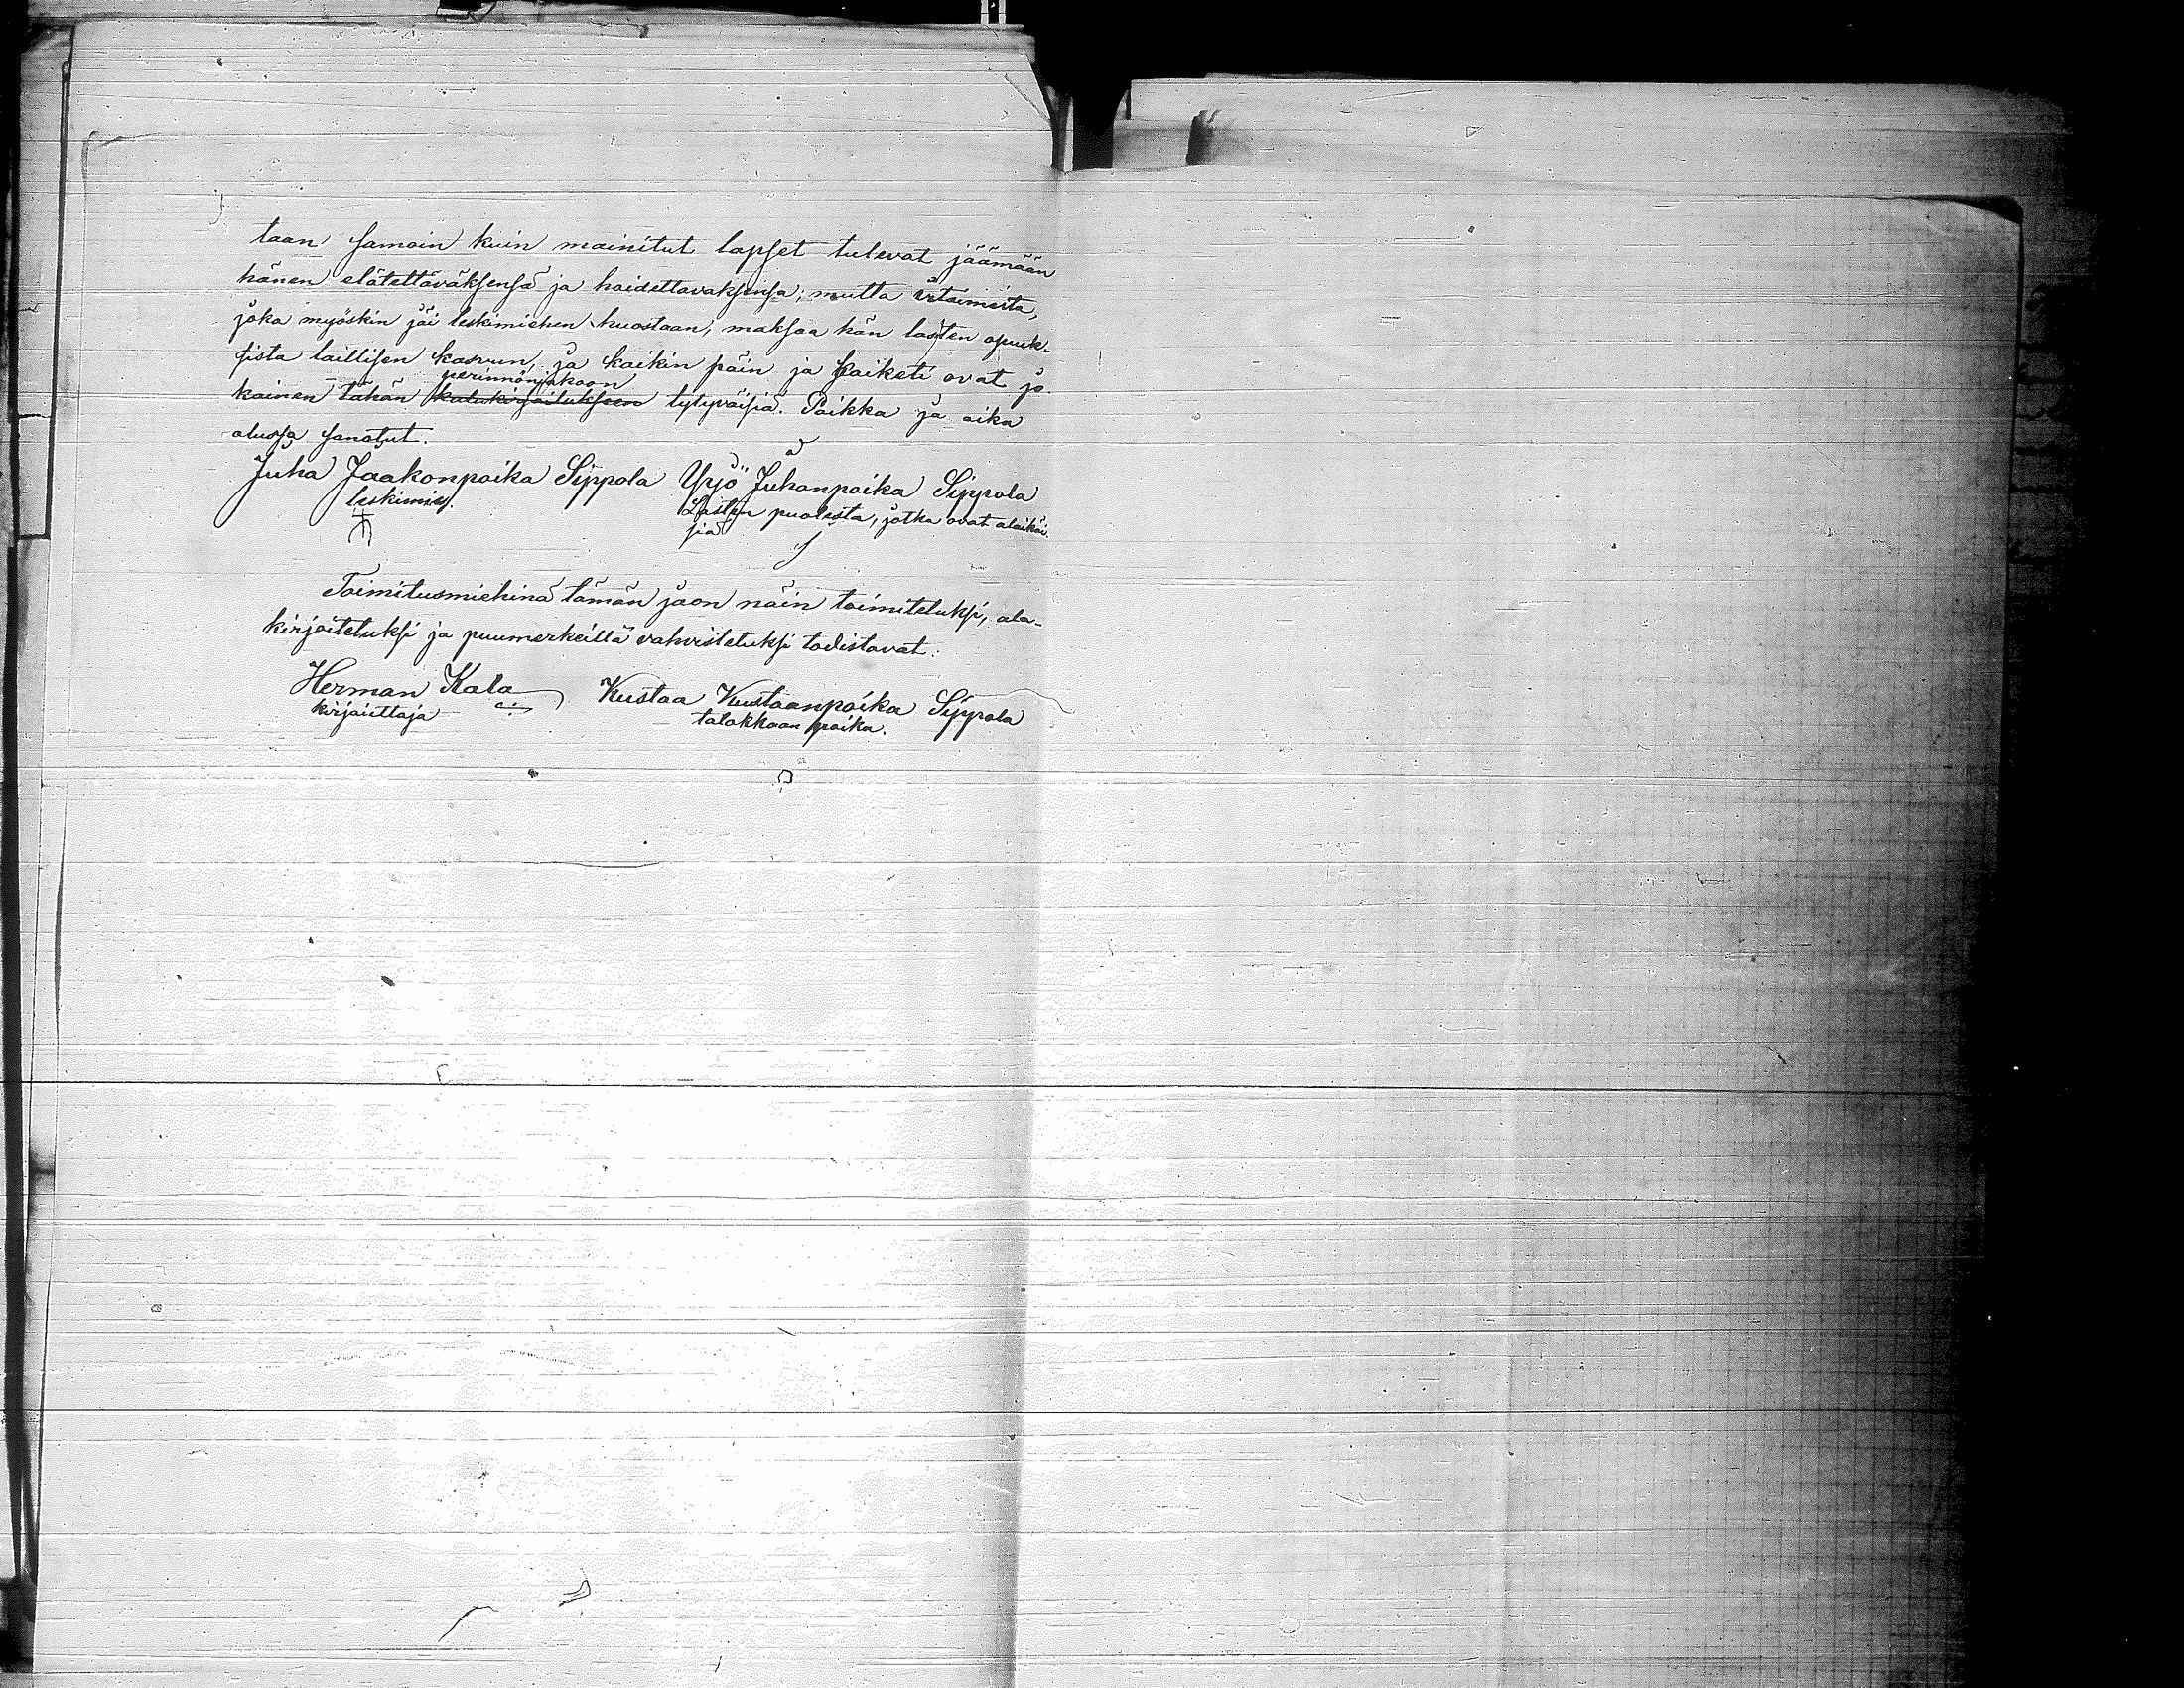 taan samoin kuin mainitut lapset tulevat jäämään
hänen elätettäväksensä ja hoidettavaksensa; mutta irtaimesta,
joka myöskin jäi leskimiehen huostaan, maksaa hän lasten osuuk-
sista laillisen kasvun, ja kaikin päin ja kaiketi ovat jo-
perinnönjakoon
kainen tähän kalukirjoitukseen tytyväisiä. Paikka ja aika
alussa sanotut.
Juha Jaakonpoika Sippola Yrjö Juhanpoika Sippola
leskimies. Lasten puolesta, jotka ovat alaikäi-
siä
Toimitusmiehinä tämän jaon näin toimitetuksi, ala-
kirjoitetuksi ja puumerkeillä vahvistetuksi todistavat:
Herman Kala Kustaa Kustaanpoika Sippola
kirjoittaja talokkaan poika.